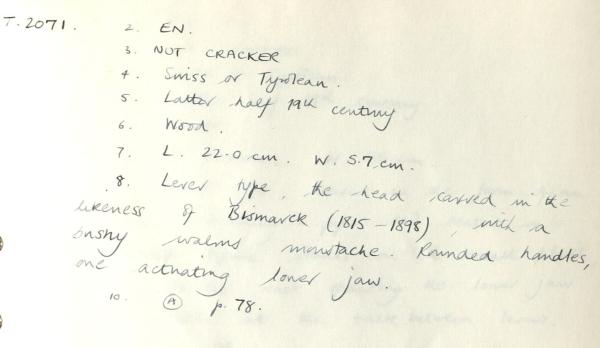 T.2071. 2. EN.
3. NUT CRACKER
4. Swiss or Tyrolean.
5. Latter half 19th century
6. Wood.
7. L. 22.0 cm. W. 5.7 cm.
8. Lever type, the head carved in the
likeness of Bismarck (1815-1898), with a
bushy walrus moustache. Rounded handles,
one actuating lower jaw.
10. Ⓐ p. 78.